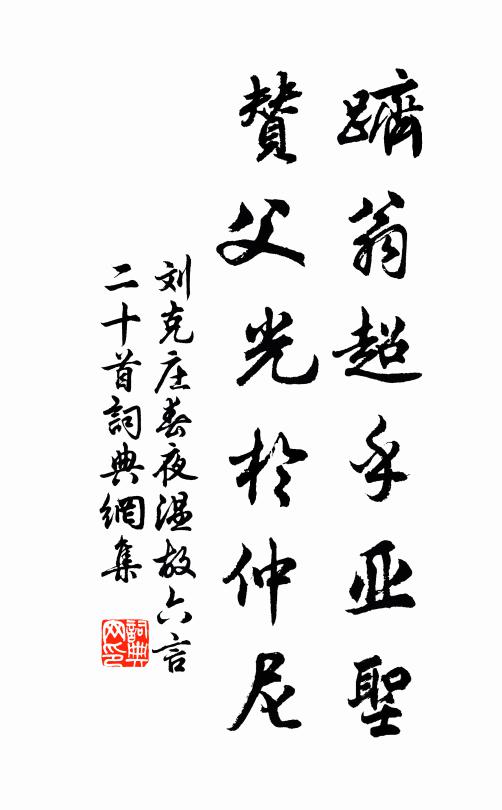 躋翁超乎亚聖
贊父光於仲尼
刘克庄春夜温故六言
二十首詞典網集
詞典网印